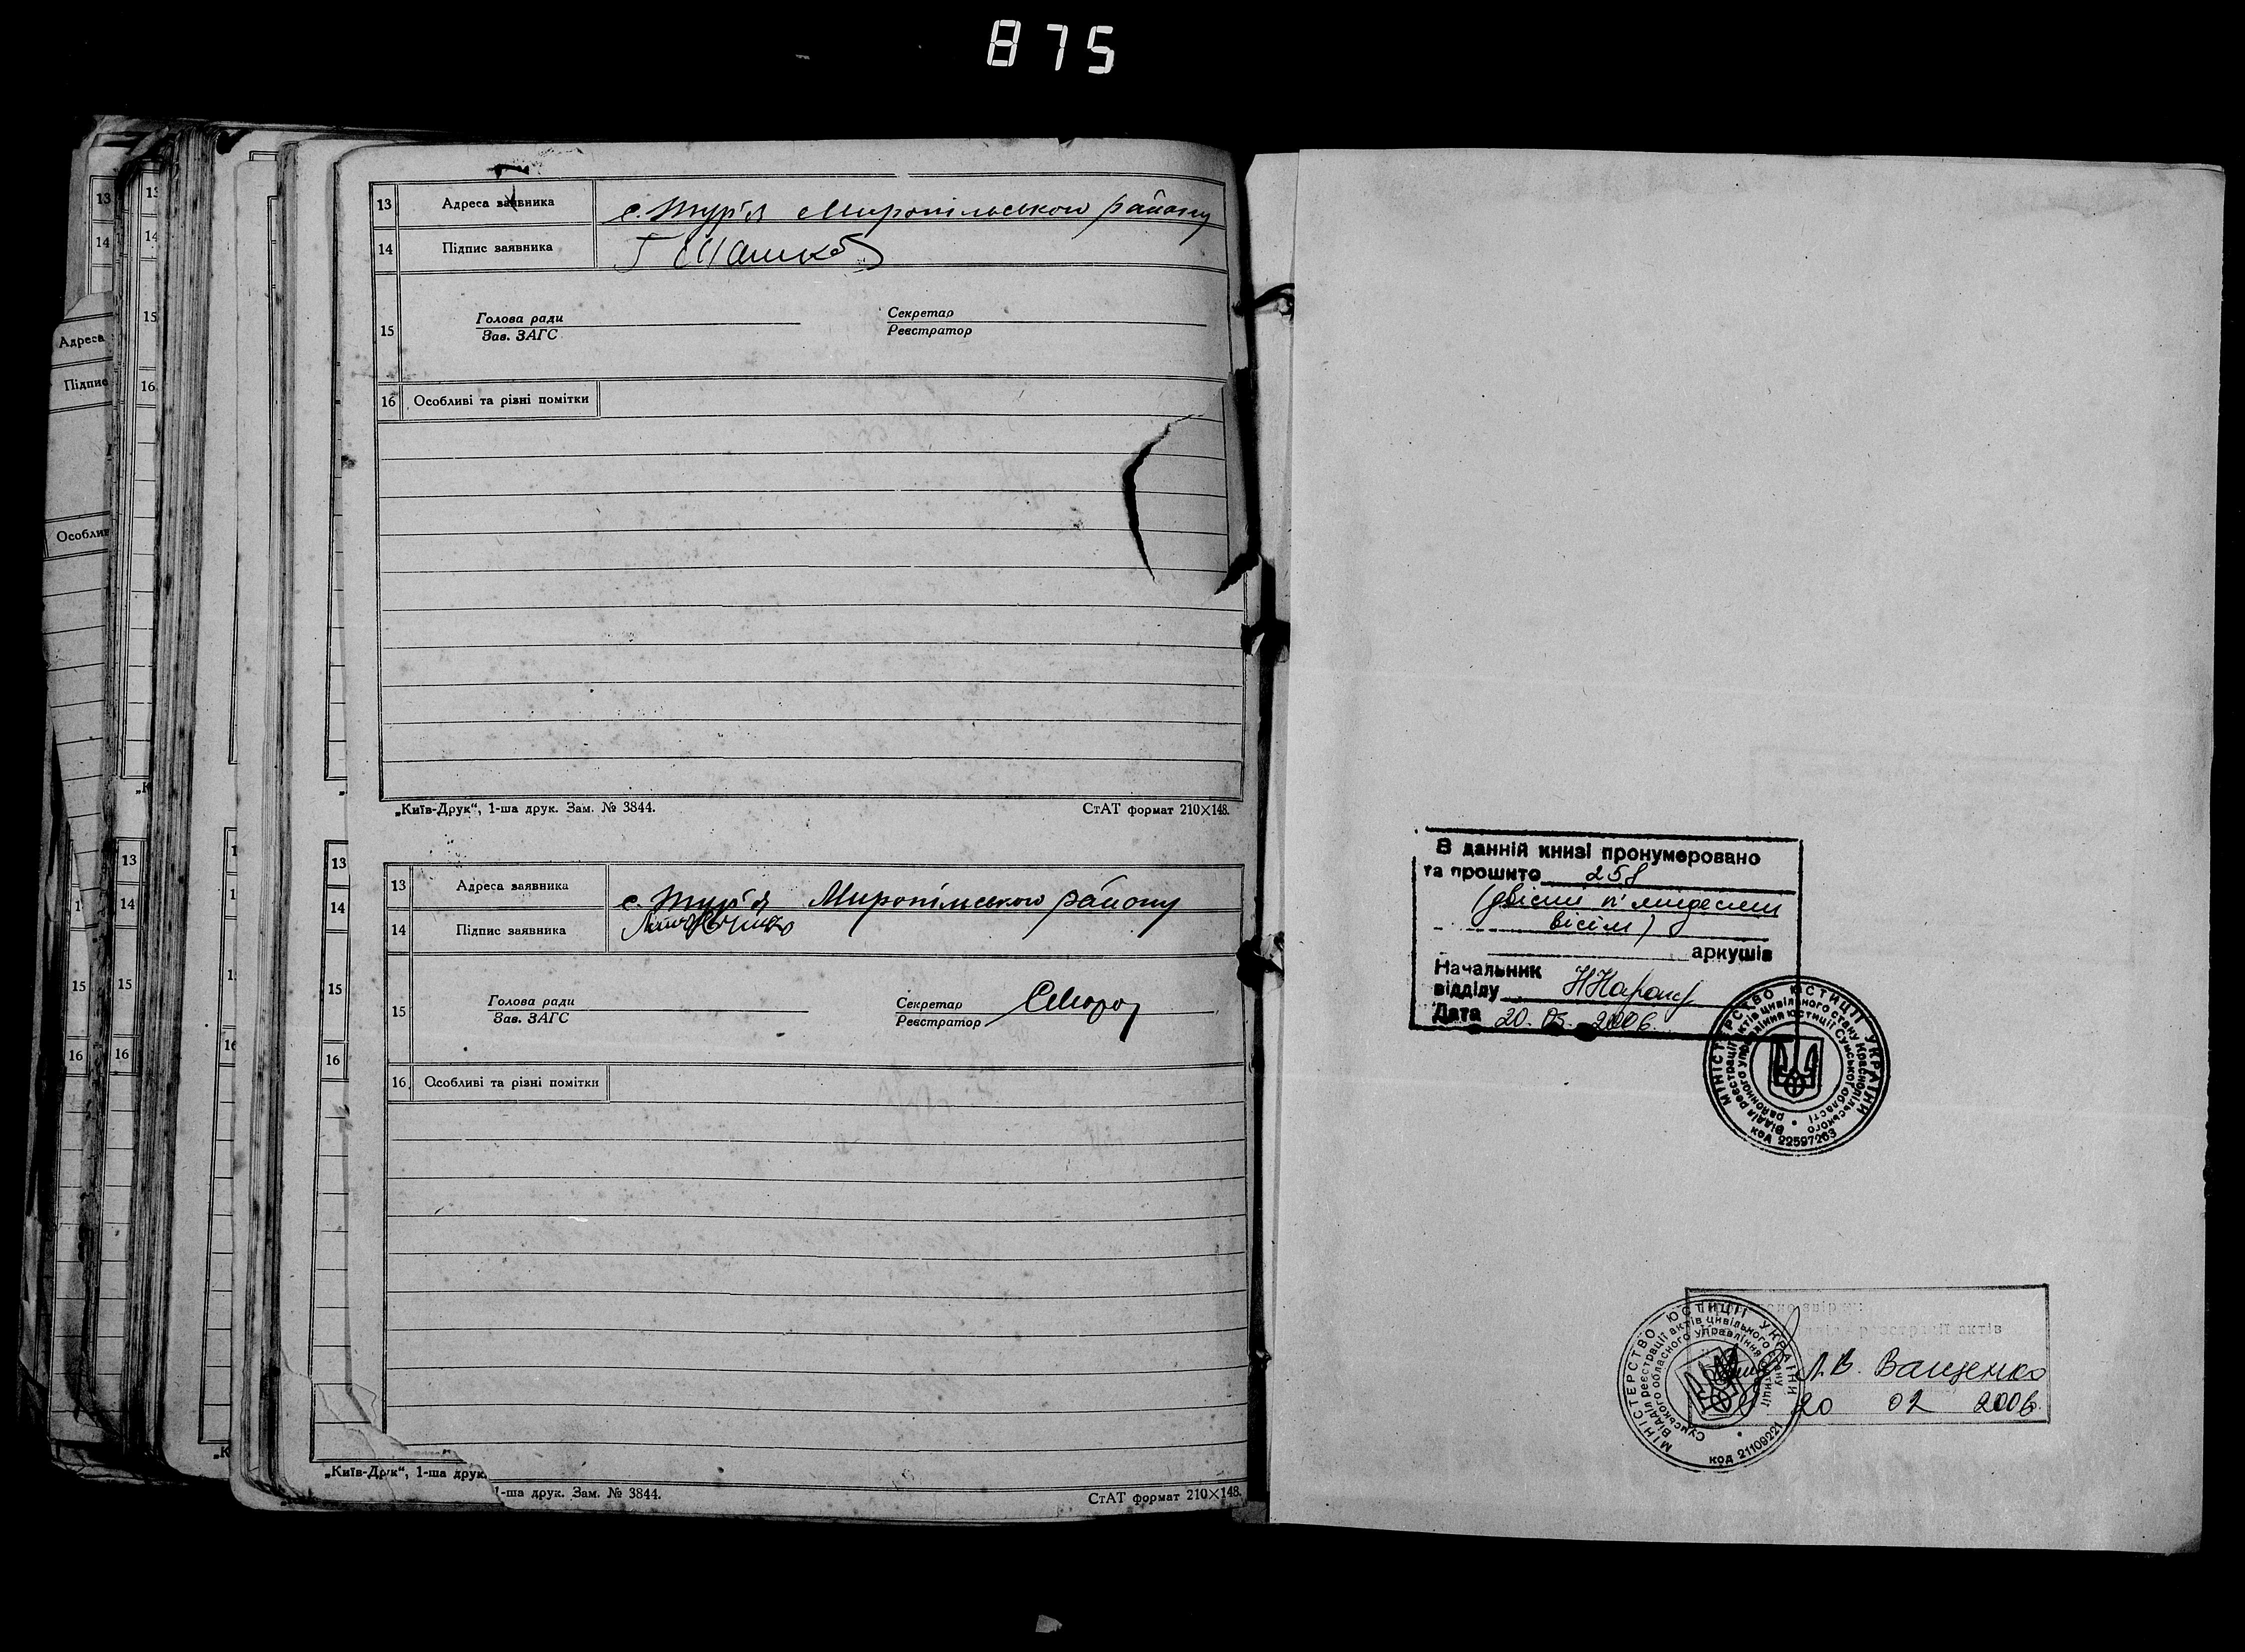 875
13 Адреса заявника с. Тур'я Миропільського району
14 Підпис заявника
15 Голова ради Секретар
Зав. ЗАГС Реєстратор
16 Особливі та різні помітки
„Київ-Друк“, 1-ша друк. Зам. № 3844. СтАТ формат 210×148.
13 Адреса заявника с. Тур'я Миропільського району
14 Підпис заявника
15 Голова ради Секретар
Зав. ЗАГС Реєстратор
16 Особливі та різні помітки
„Київ-Друк“, 1-ша друк.
1-ша друк. Зам. № 3844. СтАТ формат 210×148.
13
14
15
16
Адреса
Підпис
Особлив
В данній книзі пронумеровано
та прошито 258
(двісти п'ятдесят
вісім)
аркушів
Начальник
відділу
Дата 20. 05. 2006.
МІНІСТЕРСТВО ЮСТИЦІЇ УКРАЇНИ
Відділ реєстрації актів цивільного стану Краснопільського
районного управління юстиції Сумської області
код 22597263
МІНІСТЕРСТВО ЮСТИЦІЇ УКРАЇНИ
Відділ реєстрації актів цивільного стану
Сумського обласного управління юстиції
код 21109221
реєстрації актів
Л.В. Ващенко
20 02 2006.